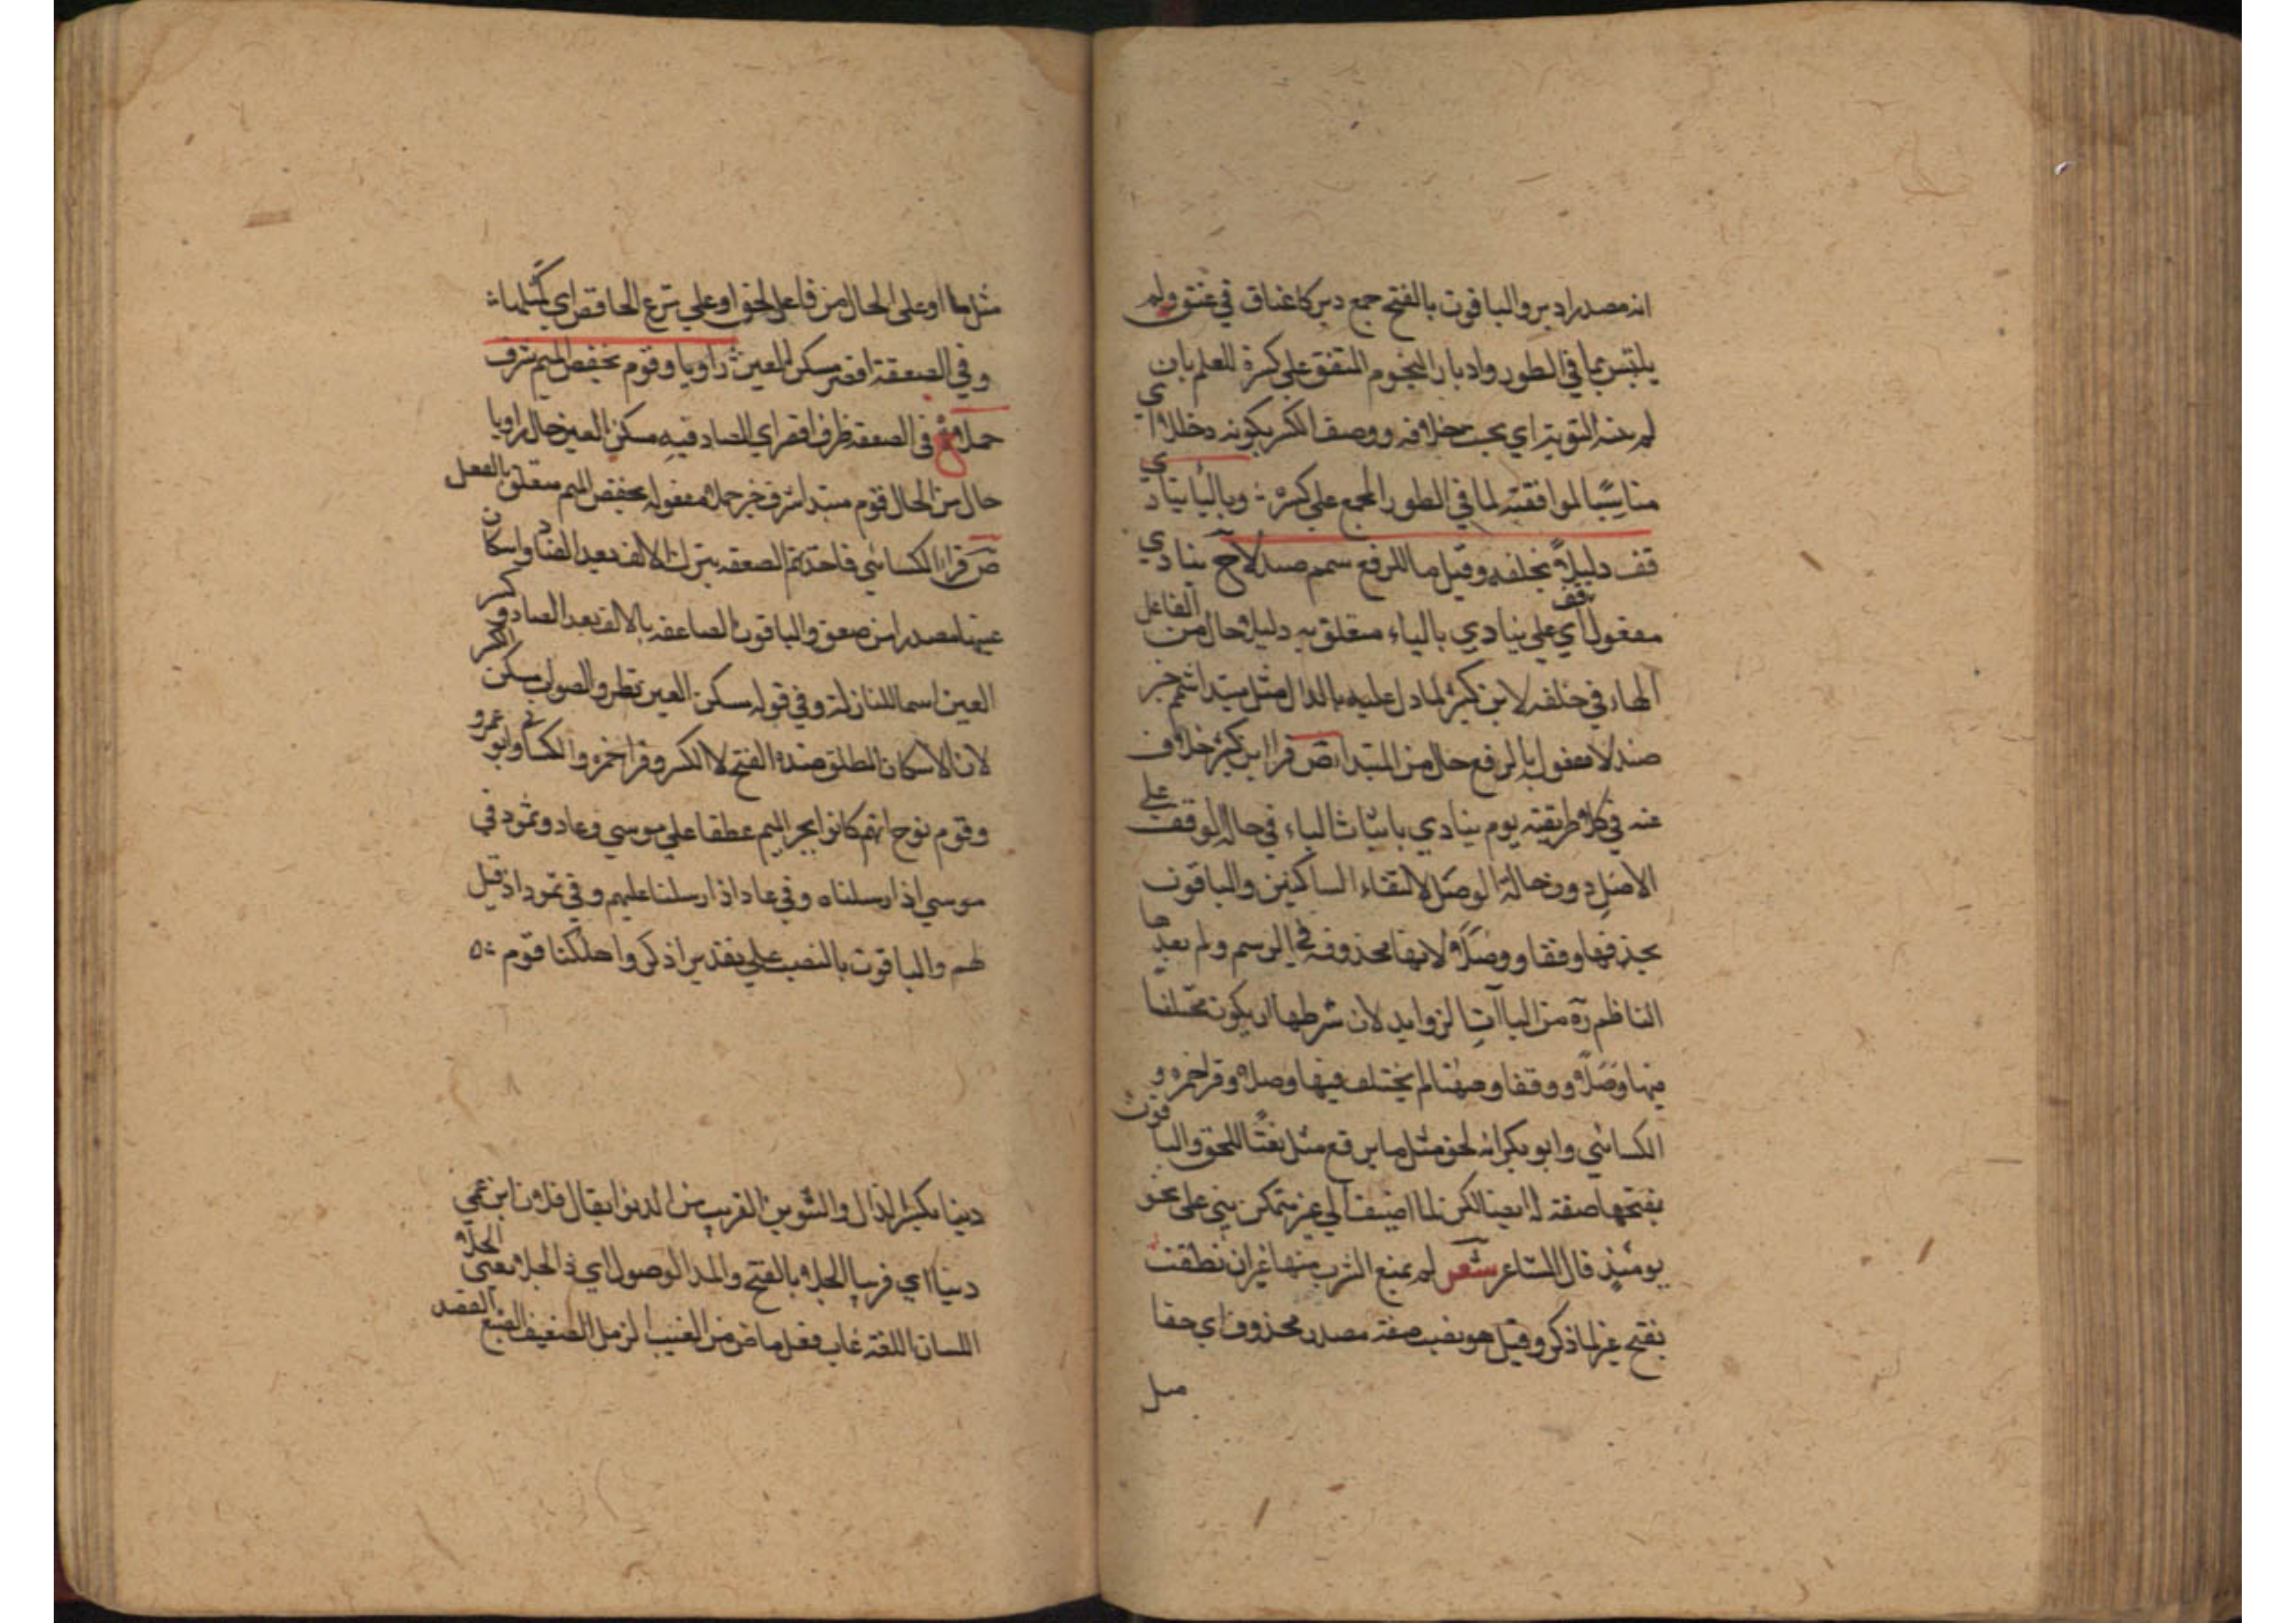 انه مصدر ادبر والباقون بالفتح جمع دبر كاعناق في عنق ولم
يلتبس بما في الطور وادبار النجوم المتفق على كسره للعلم بان
مناسبا لموافقته لما في الطور المجمع على كسره ؞ وبالياء ينادي
قف دليلا بخلفه وقيل مثل ما بالرفع شمم صندلا ح ينادي
مفعول قف اي على ينادي بالياء متعلق به دليلا حال من الفاعل
الهاء في خلفه لابن كثير لمادل عليه بالدال مثل مبتدا شمم خبر
صندلا مفعول به بالرفع حال من المبتدا ص قرا ابن كثير خلاف
عنه في كلا طريقته يوم ينادي باثبات الياء في حال الوقف على
الاصل دون حالة الوصل لالتقاء الساكنين والباقون
بحذفها وقفا ووصلا لانها محذوفة في الرسم ولم يعدها
الناظم ره من الياآت الزوايد لان شرطها ان يكون مختلفا
فيها وصلا ووقفا وههنا لم يختلف فيها وصلا وقرا حمزه و
الكسائي وابو بكر انه لحق مثل ما برفع مثل نعتا للحق والباقون
بفتحها صفة له ايضا لكن لما اضيف الي غير متمكن بني على نحو
يومئذ قال الشاعر شعر لم يمنع الشرب منها غير ان نطقت
بفتح غير لما ذكر وقيل هو نصب صفة مصدر محذوف اي حقا
مثل
مثل ما او على الحال من فاعل لحق او على نزع الخافض اي كمثل ما ؞
وفي الصعقة اقصر مسكن العين راويا وقوم بخفض الميم شرف
حملا ح في الصعقة ظرف اقصر اي الصاد فيه مسكن العين حال راويا
حال من الحال قوم مبتدا شرف خبر حملا مفعوله بخفض الميم متعلق بالفعل
ص قرا الكسائي فاخذتهم الصعقه بترك الالف بعد الصاد واسكان
عينها مصدرا من صعق والباقون الصاعقه بالالف بعد الصاد و كسر
العين اسما للنازلة وفي قوله مسكن العين نظر والصواب مسكن الكسر
لان الاسكان المطلق ضده الفتح لا الكسر وقرا حمزه والكسائي وابو عمرو
وقوم نوح انهم كانوا بجر الميم عطفا علي موسي وعاد وثمود في
موسي اذ ارسلناه وفي عاد اذ ارسلنا عليهم وفي ثمود اذ قيل
لهم والباقون بالنصب علي تقدير اذكر او اهلكنا قوم ؞
دنيا بكسر الدال والتنوين القريب من الدنو يقال فلان ابن عمي
دنيا اي قريبا الحلا بالفتح والمد الوصول اي ذا الحلا يعني الحلا
اللسان اللغة غاب فعل ماض من الغيب الزمل الضعيف الضبع العضد